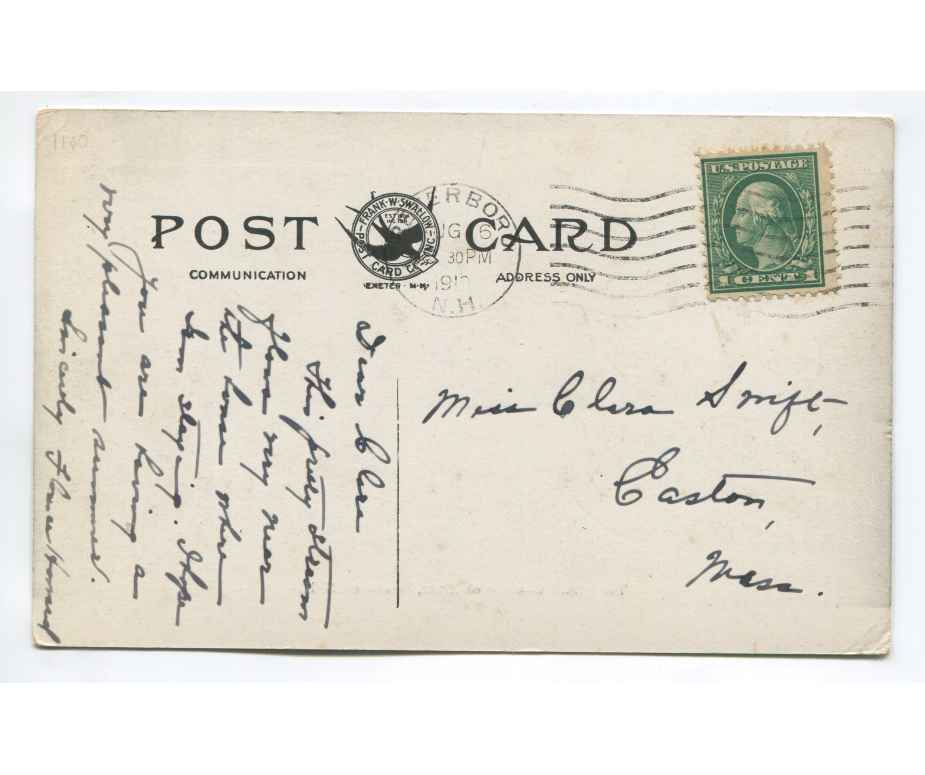 1160
POST CARD
COMMUNICATION
ADDRESS ONLY
FRANK·W·SWALLOW
POST CARD CO. INC.
EXETER·N·H·
ERBORO
AUG 6
30 PM
191
N.H.
U.S. POSTAGE
1 CENT 1
Dear Clara
This pretty stream
flows very near
the home where
I am staying. I hope
you are having a
very pleasant summer.
Sincerely Florence Howard
Miss Clara Swift,
Easton,
Mass.